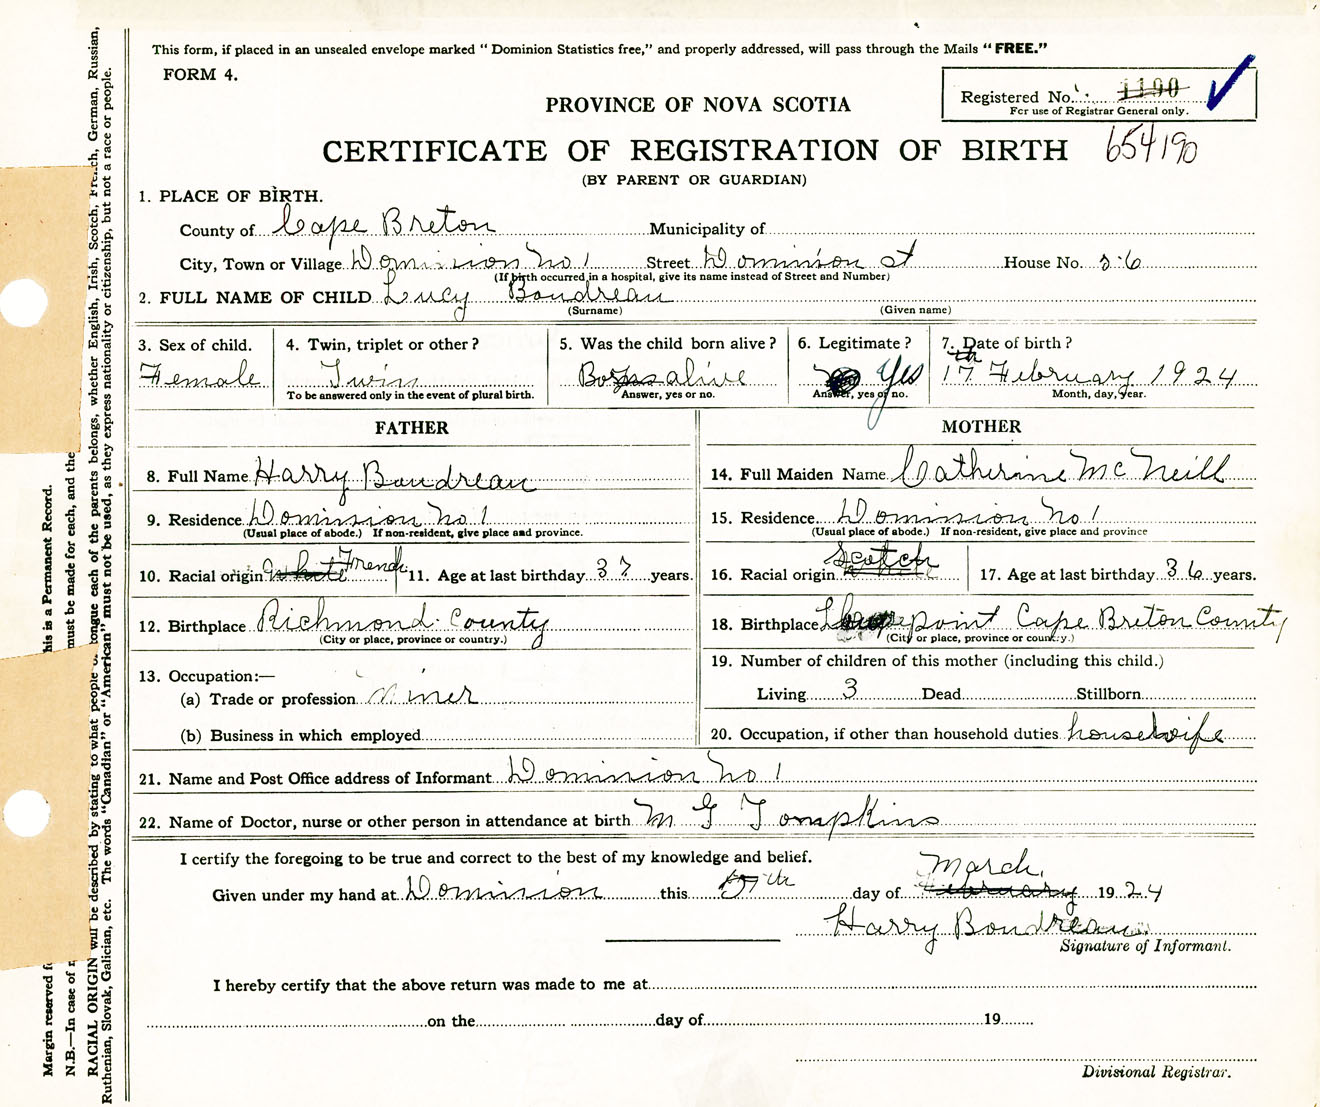 This form, if placed in an unsealed envelope marked “ Dominion Statistics free,” and properly addressed, will pass through the Mails “ FREE.”
FORM 4.
Registered No. 1190
For use of Registrar General only.
PROVINCE OF NOVA SCOTIA
CERTIFICATE OF REGISTRATION OF BIRTH 654190
(BY PARENT OR GUARDIAN)
1. PLACE OF BIRTH.
County of Cape Breton Municipality of
City, Town or Village Dominion No 1 Street Dominion st House No. 26
(If birth occurred in a hospital, give its name instead of Street and Number)
2. FULL NAME OF CHILD Lucy Boudreau
(Surname) (Given name)
3. Sex of child. 4. Twin, triplet or other? 5. Was the child born alive? 6. Legitimate? 7. Date of birth?
Female Twin Born alive Yes 17th February 1924
To be answered only in the event of plural birth. Answer, yes or no. Answer, yes or no. Month, day, year.
FATHER
8. Full Name Harry Boudreau
9. Residence Dominion No 1
(Usual place of abode.) If non-resident, give place and province.
10. Racial origin white French 11. Age at last birthday 37 years.
12. Birthplace Richmond County
(City or place, province or country.)
13. Occupation:—
(a) Trade or profession miner
(b) Business in which employed
MOTHER
14. Full Maiden Name Catherine McNeill
15. Residence Dominion No 1
(Usual place of abode.) If non-resident, give place and province
16. Racial origin Scotch 17. Age at last birthday 36 years.
18. Birthplace point Cape Breton County
(City or place, province or country.)
19. Number of children of this mother (including this child.)
Living 3 Dead Stillborn
20. Occupation, if other than household duties housewife
21. Name and Post Office address of Informant Dominion No 1
22. Name of Doctor, nurse or other person in attendance at birth M G Tompkins
I certify the foregoing to be true and correct to the best of my knowledge and belief.
March
Given under my hand at Dominion this day of February 1924
Harry Boudreau
Signature of Informant.
I hereby certify that the above return was made to me at
on the day of 19
Divisional Registrar.
Margin reserved
his is a Permanent Record.
N.B.—In case of
must be made for each, and the
RACIAL ORIGIN will be described by stating to what people tongue each of the parents belongs, whether English, Irish, Scotch, French, German, Russian,
Ruthenian, Slovak, Galician, etc. The words “Canadian” or “American” must not be used, as they express nationality or citizenship, but not a race or people.